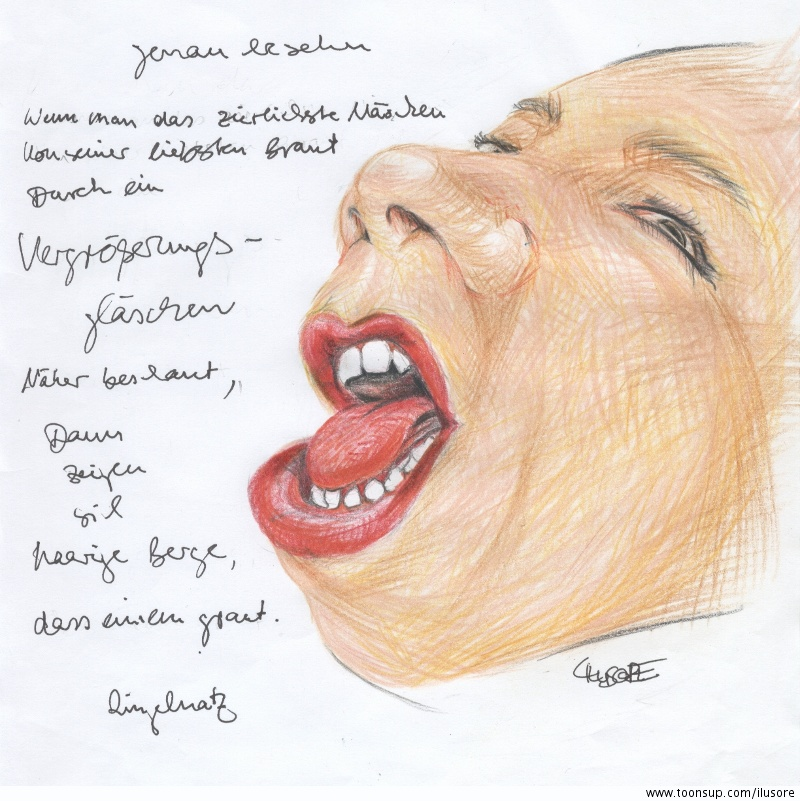 Genau besehn
Wenn man das zierlichste Näschen
Von seiner liebsten Braut
Durch ein
Vergrößerungs-
gläschen
Näher beschaut,
Dann
zeigen
sich
haarige Berge,
dass einem graut.
Ringelnatz
ILUSORE
www.toonsup.com/ilusore